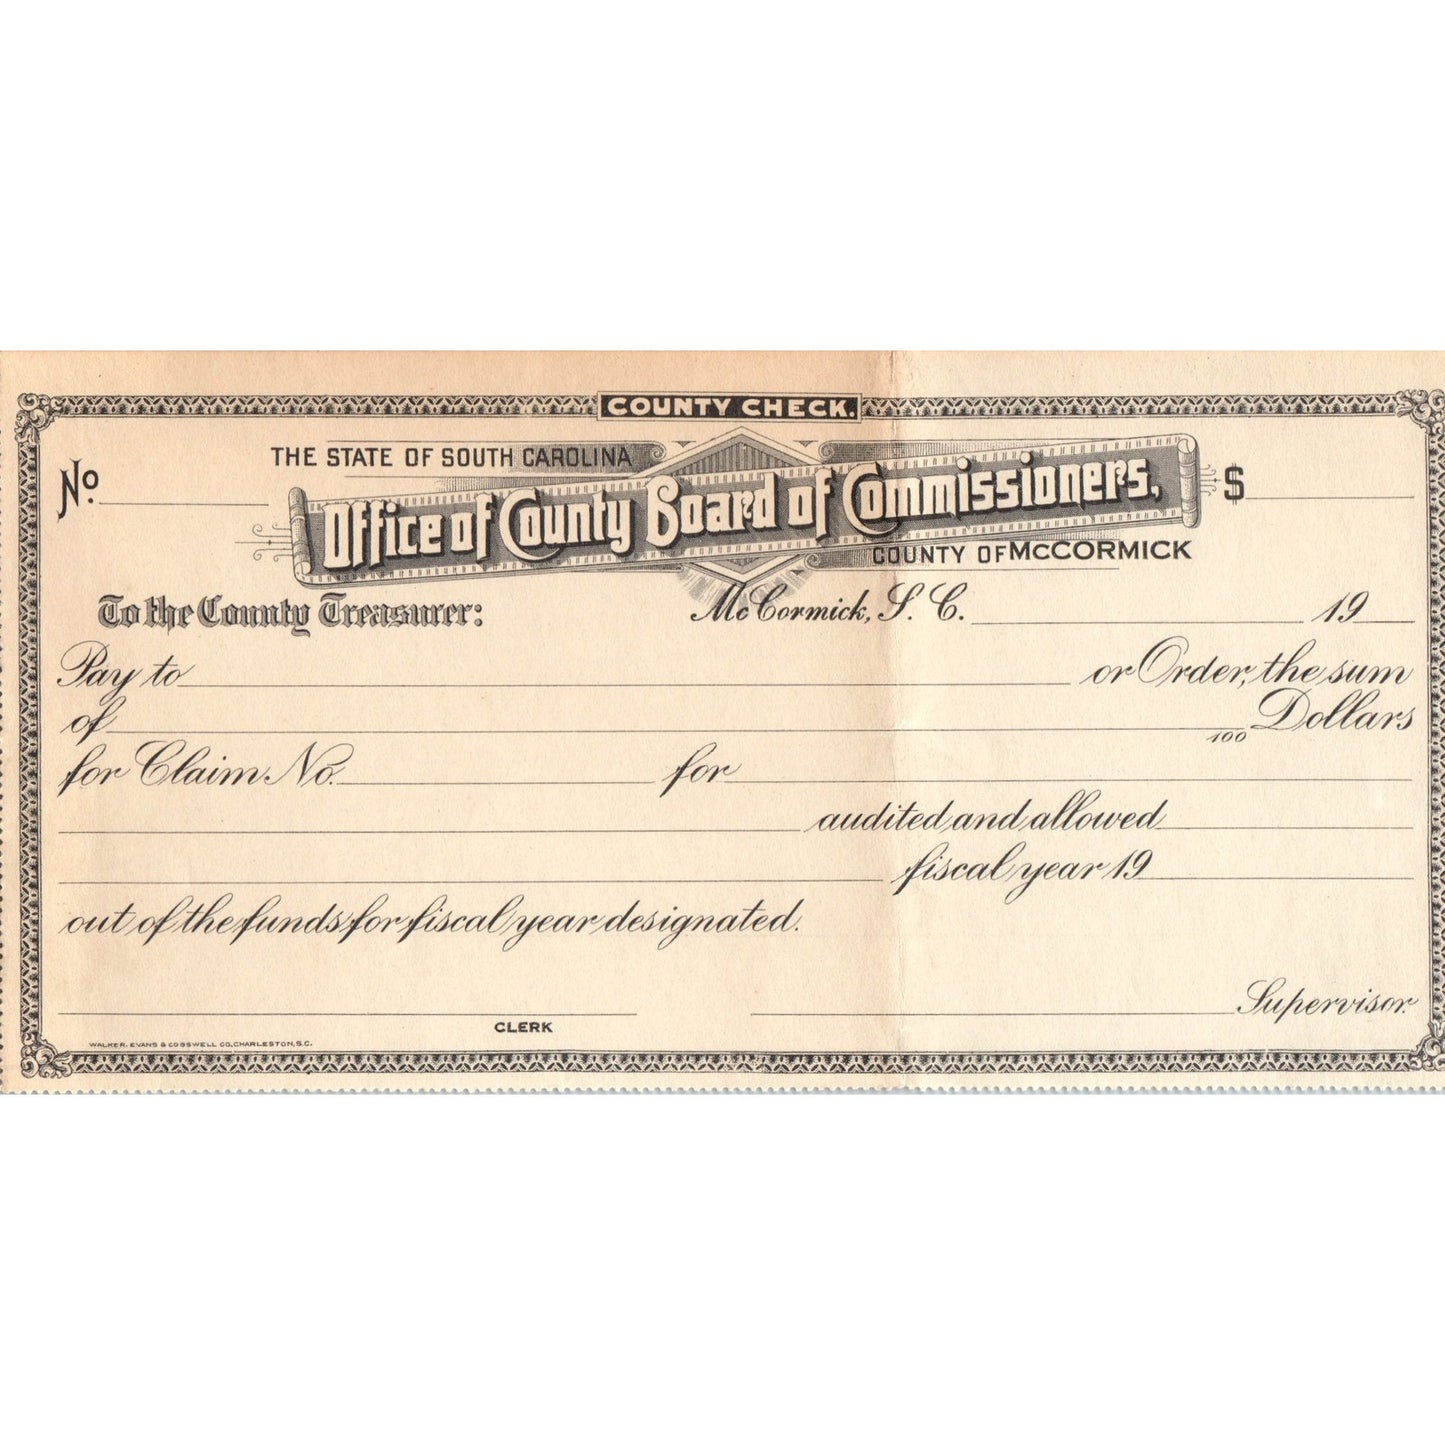 COUNTY CHECK.
THE STATE OF SOUTH CAROLINA
No. $
Office of County Board of Commissioners,
COUNTY OF McCORMICK
To the County Treasurer: McCormick, S. C. 19
Pay to or Order, the sum
of 100 Dollars
for Claim No. for
audited and allowed
fiscal year 19
out of the funds for fiscal year designated.
Supervisor.
CLERK
WALKER, EVANS & COGSWELL CO., CHARLESTON, S.C.